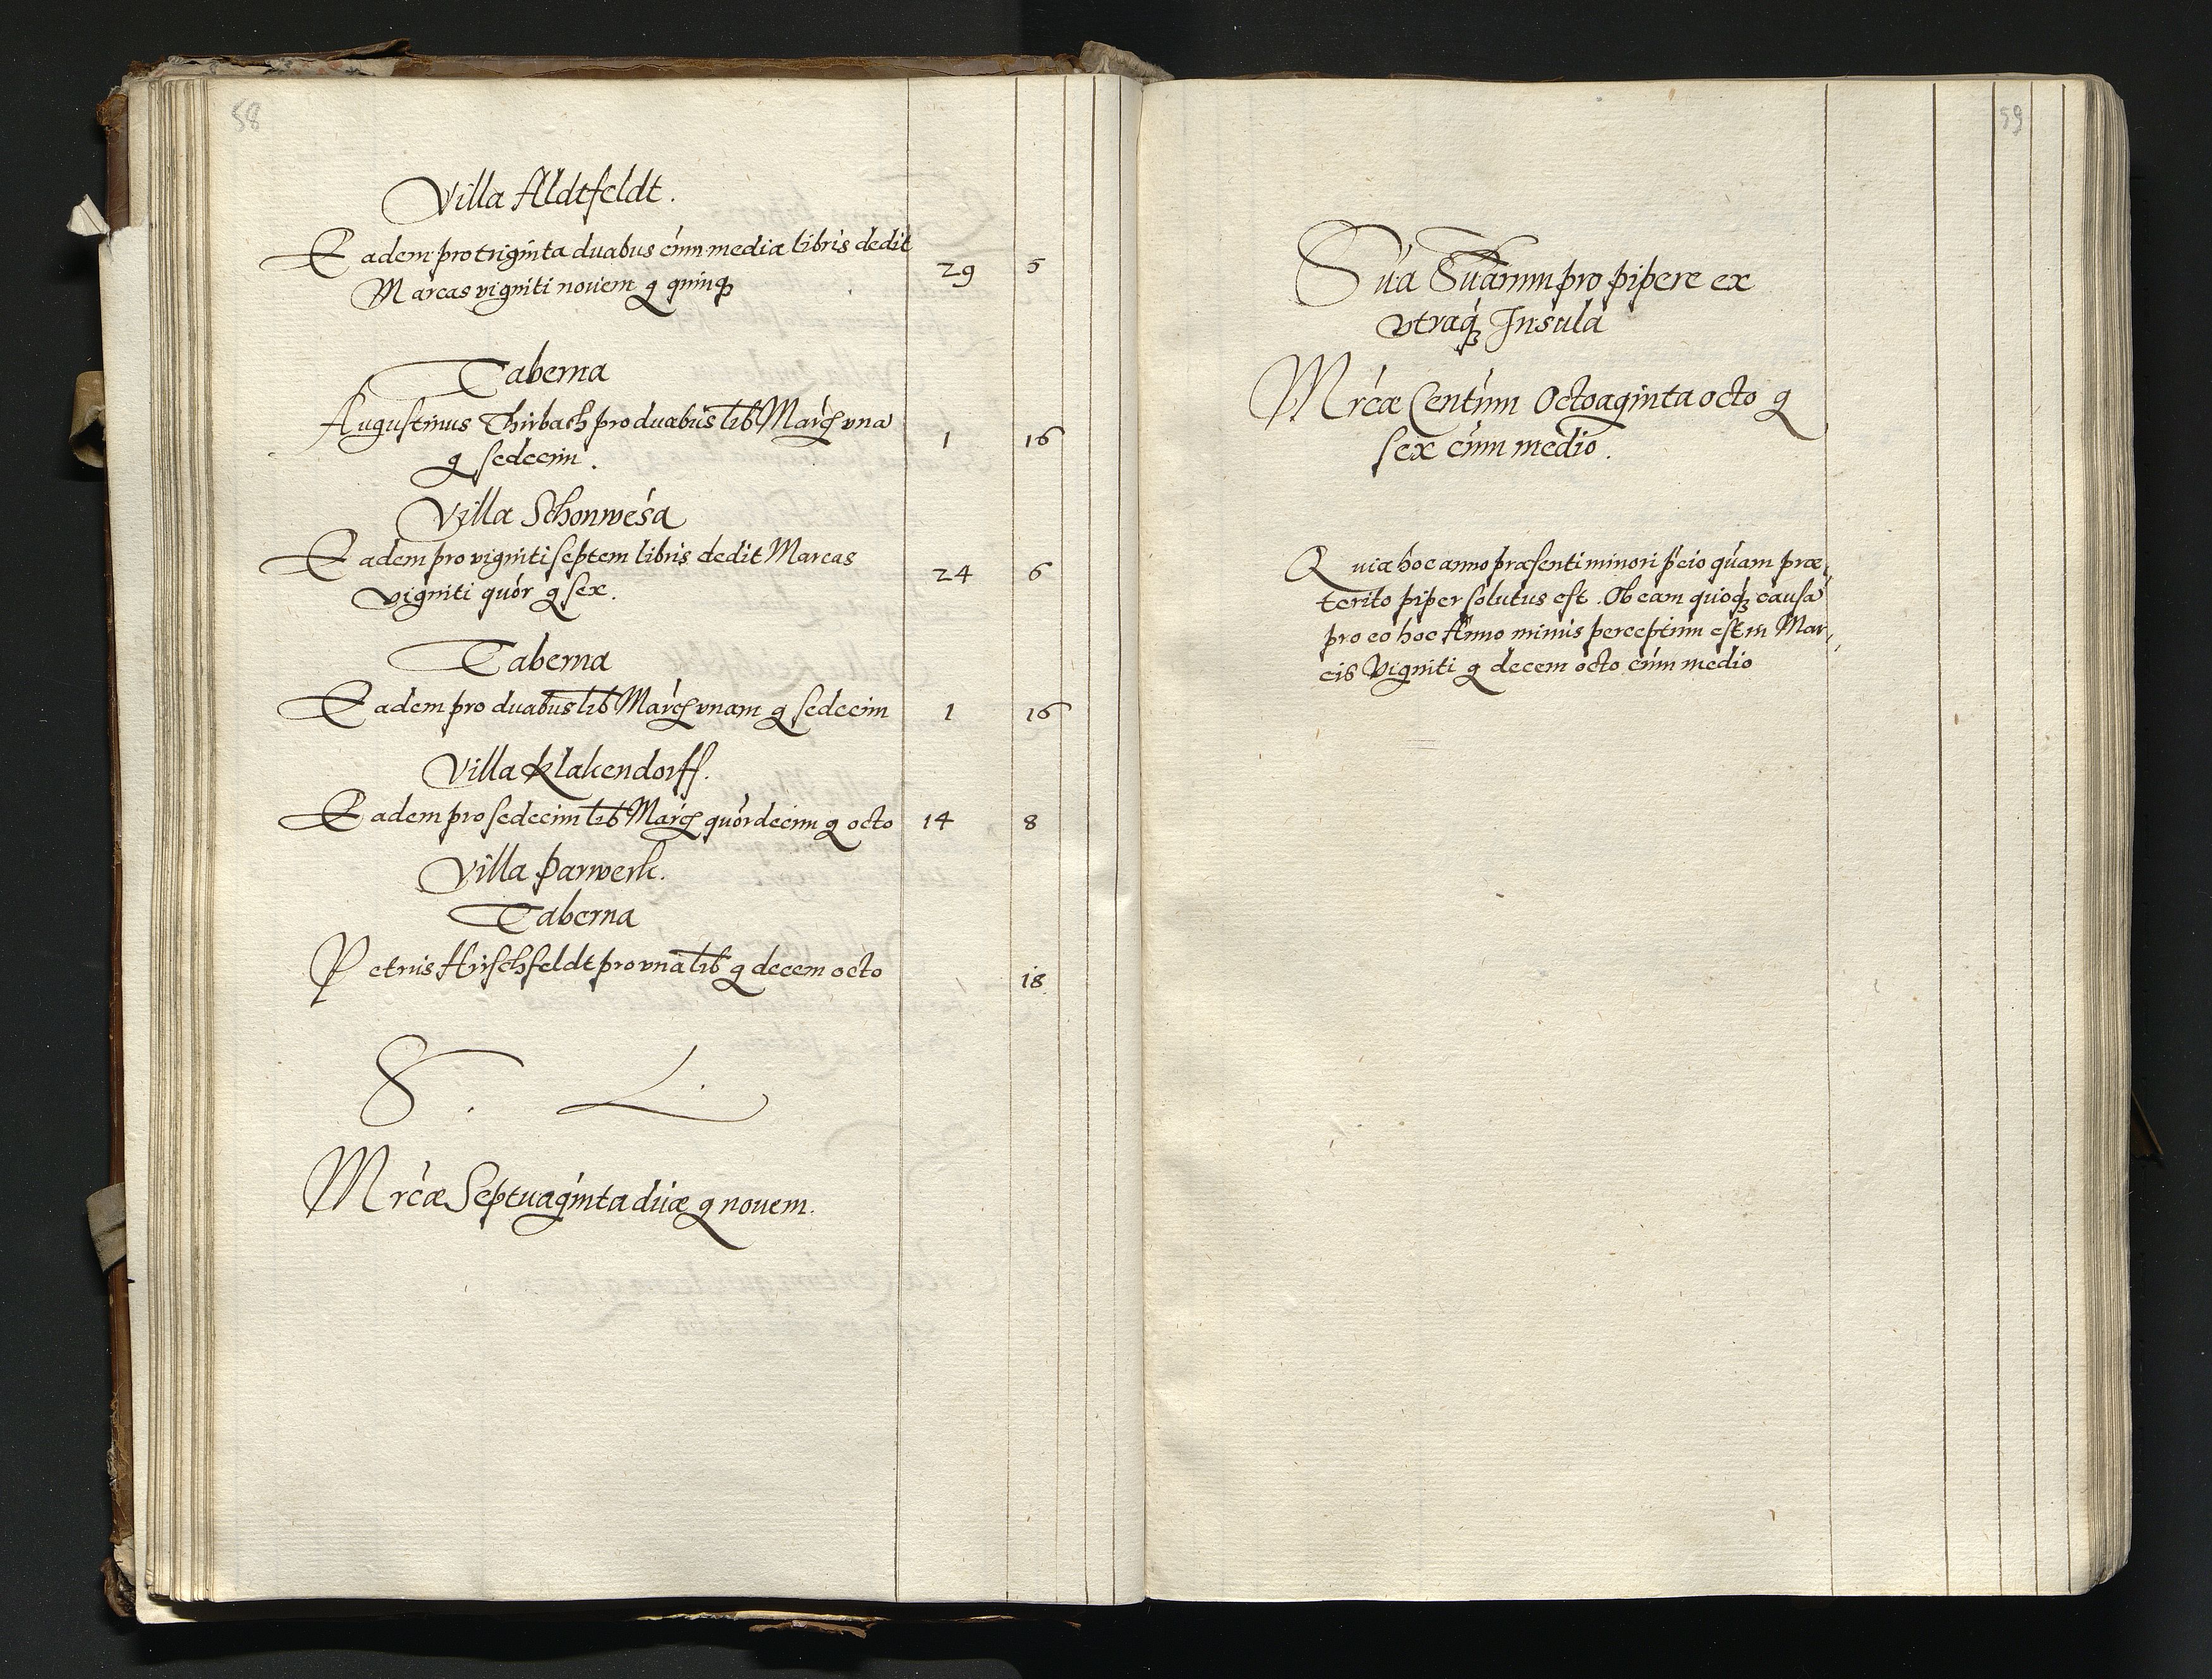 58
Villa Aldtfeldt.
Eadem pro triginta duabus cum media libris dedit
Marcas viginti novem g quinqꝫ 29 5
Taberna
Augustinus Thirbach pro duabus lib Marc una
g sedecim. 1 16
Villa Schonwesa
Eadem pro viginti septem libris dedit Marcas
viginti quor g sex. 24 6
Taberna
Eadem pro duabus lib Marc unam g sedecim 1 16
Villa Klakendorff.
Eadem pro sedecim lib Marc quordecim g octo 14 8
Villa parwerk.
Taberna
Petrus Hirschfeldt pro una lib g decem octo 18
S. L.
Mrcæ Septuaginta duæ g novem.
59
Sua Suarum pro pipere ex
utraqꝫ Insula
Mrcæ Centum Octoaginta octo g
sex cum medio.
Quia hoc anno præsenti minori pcio quam præ,
terito piper solutus est. Ob eam quoqꝫ causa
pro eo hoc Anno minus perceptum est in Mar,
cis Viginti g decem octo cum medio